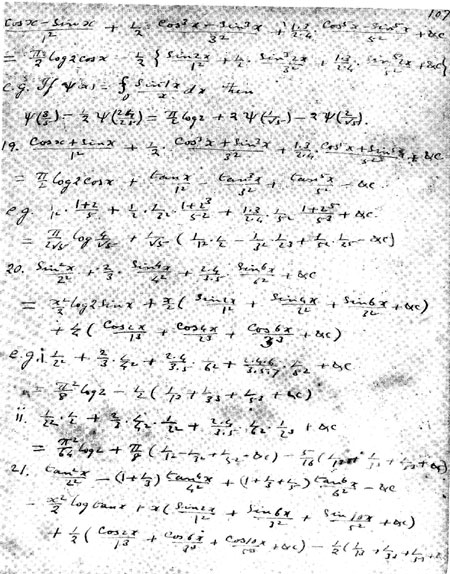 107
(cos x − sin x)/1² + 1/2 · (cos³x − sin³x)/3² + (1·3)/(2·4) · (cos⁵x − sin⁵x)/5² + &c
= π/2 log 2cos x − 1/2 { sin 2x/1² + 1/2 · sin³2x/3² + (1·3)/(2·4) · sin⁵2x/5² + &c }
e.g. If ψ(x) = ∫₀ (sin⁻¹x)/x dx then
ψ(3/5) − 1/2 ψ(24/25) = π/2 log 2 + 2ψ(1/√5) − 2ψ(2/√5).
19. (cos x + sin x)/1² + 1/2 · (cos³x + sin³x)/3² + (1·3)/(2·4) · (cos⁵x + sin⁵x)/5² + &c
= π/2 log 2cos x + tan x/1² − tan³x/3² + tan⁵x/5² − &c
20. sin²x/2² + 2/3 · sin⁴x/4² + (2·4)/(3·5) · sin⁶x/6² + &c
= x²/2 log 2sin x + x/2 ( sin 2x/1² + sin 4x/2² + sin 6x/3² + &c )
+ 1/4 ( cos 2x/1³ + cos 4x/2³ + cos 6x/3³ + &c )
e.g. i. 1/2² + 2/3 · 1/4² + (2·4)/(3·5) · 1/6² + (2·4·6)/(3·5·7) · 1/8² + &c
= π²/8 log 2 − 1/2 ( 1/1³ + 1/3³ + 1/5³ + &c )
ii. 1/2² · 1/2 + 2/3 · 1/4² · 1/2² + (2·4)/(3·5) · 1/6² · 1/2³ + &c
= π²/64 log 2 + π/8 ( 1/1² − 1/3² + 1/5² − &c ) − 5/16 ( 1/1³ + 1/3³ + 1/5³ + &c )
21. tan²x/2² − (1 + 1/3) tan⁴x/4² + (1 + 1/3 + 1/5) tan⁶x/6² − &c
= x²/2 log tan x + x ( sin 2x/1² + sin 6x/3² + sin 10x/5² + &c )
+ 1/2 ( cos 2x/1³ + cos 6x/3³ + cos 10x/5³ + &c ) − 1/2 ( 1/1³ + 1/3³ + 1/5³ +